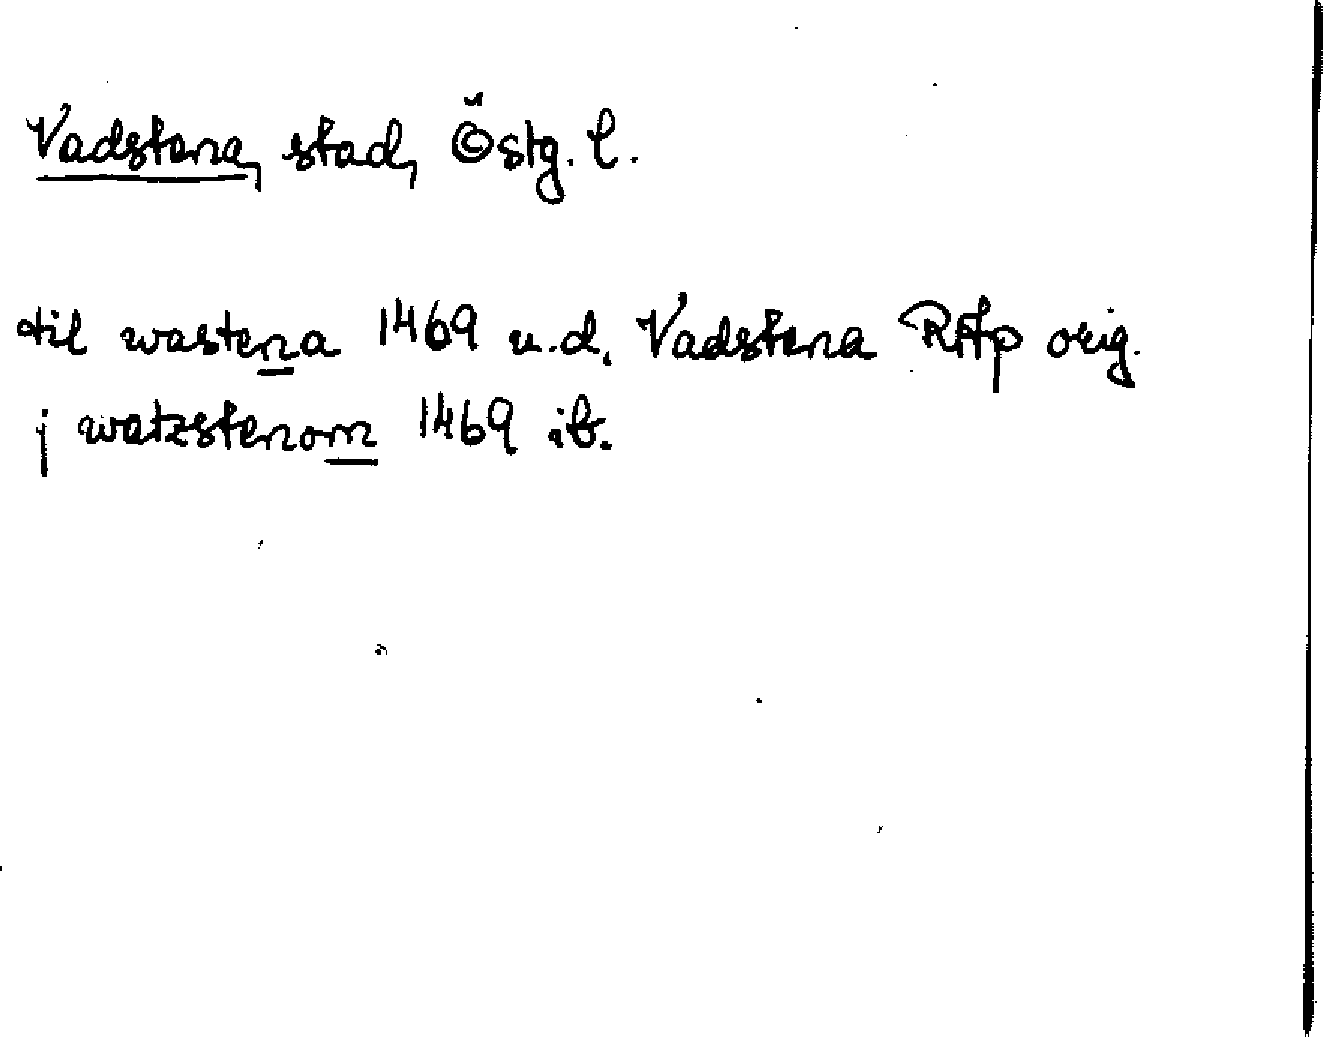 Vadstena, stad, Östg. l.
til wastena 1469 u.d. Vadstena RAp orig.
j watzstenom 1469 ib.